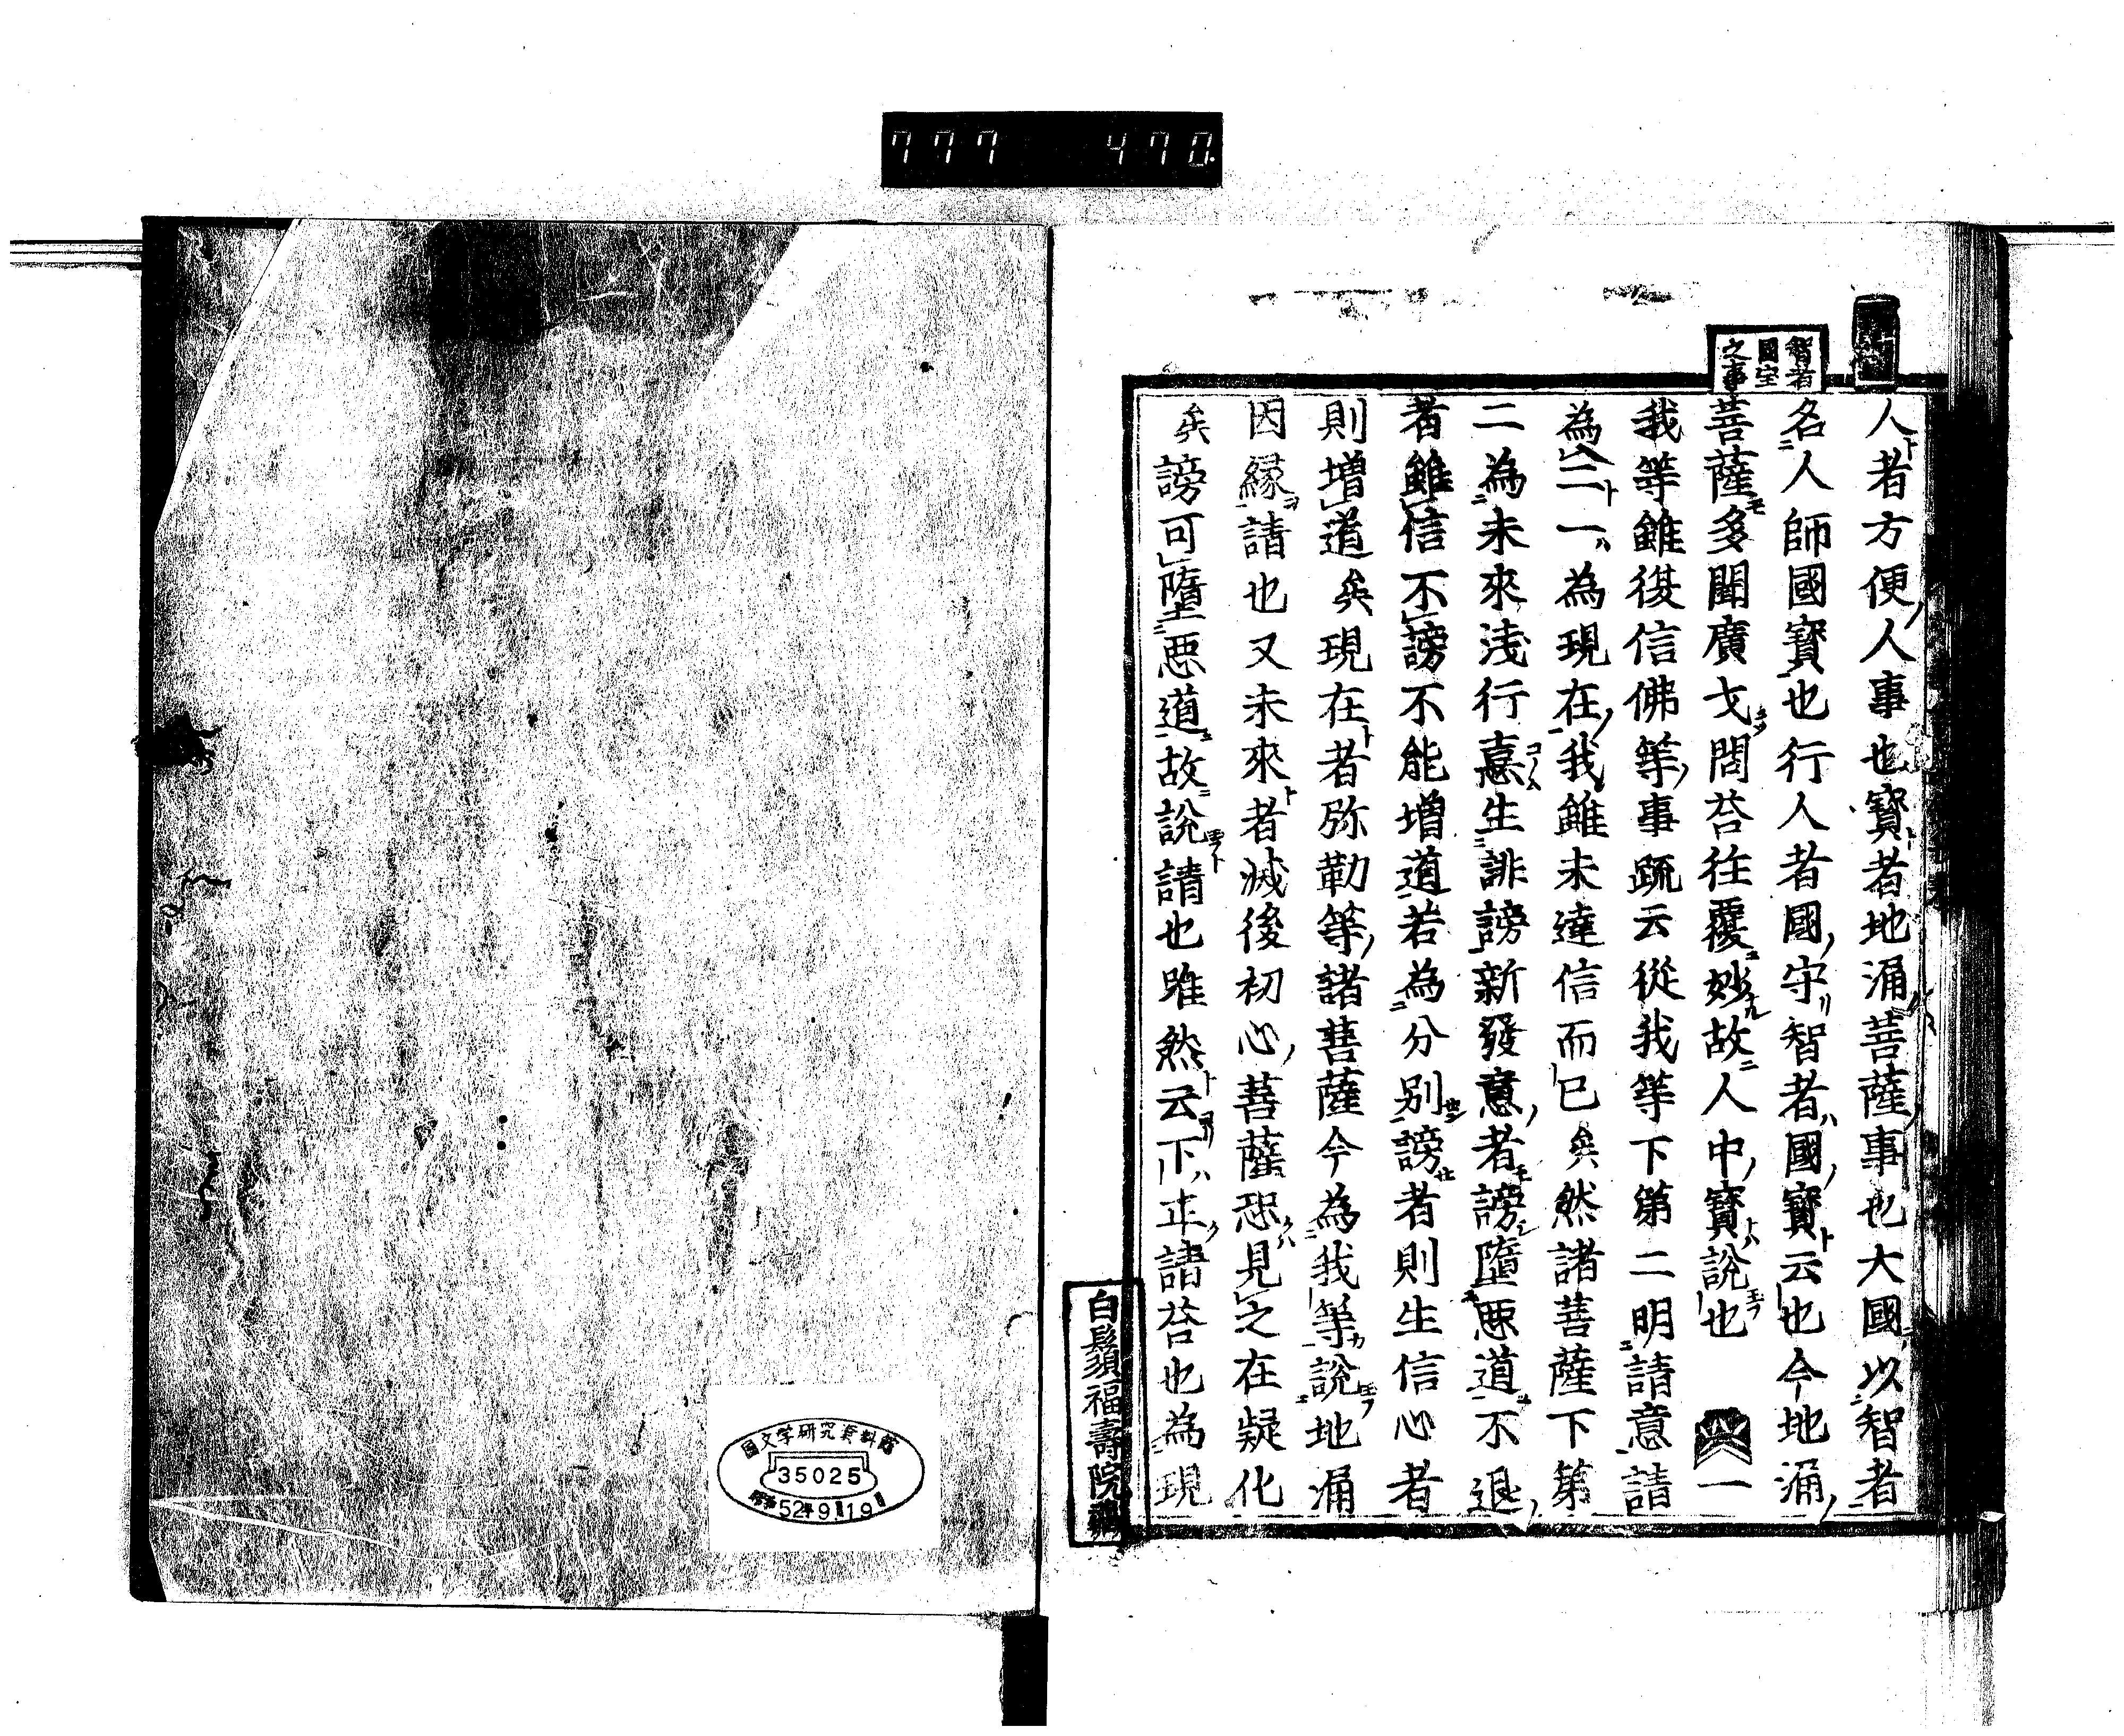 777 470
智者
國宝
之事
人者方便人事也寳者地涌菩薩事也大國以智者
名人師國寳也行人者國守智者國寳云也今地涌
菩薩多聞廣弋問荅往覆妙故人中寳說也 一
我等雖復信佛等事䟽云從我等下第二明請意請
為二一為現在我雖未達信而已矣然諸菩薩下第
二為未來淺行憙生誹謗新發意者謗墮悪道不退
者雖信不謗不能增道若為分別謗者則生信心者
則增道矣現在者弥勒等諸菩薩今為我等說地涌
因縁請也又未來者滅後初心菩薩恐見之在疑化
矣謗可墮悪道故說請也唯然云下正請荅也為現
白鬚福壽院藏
國文学研究資料館
35025
昭和52年9月19日